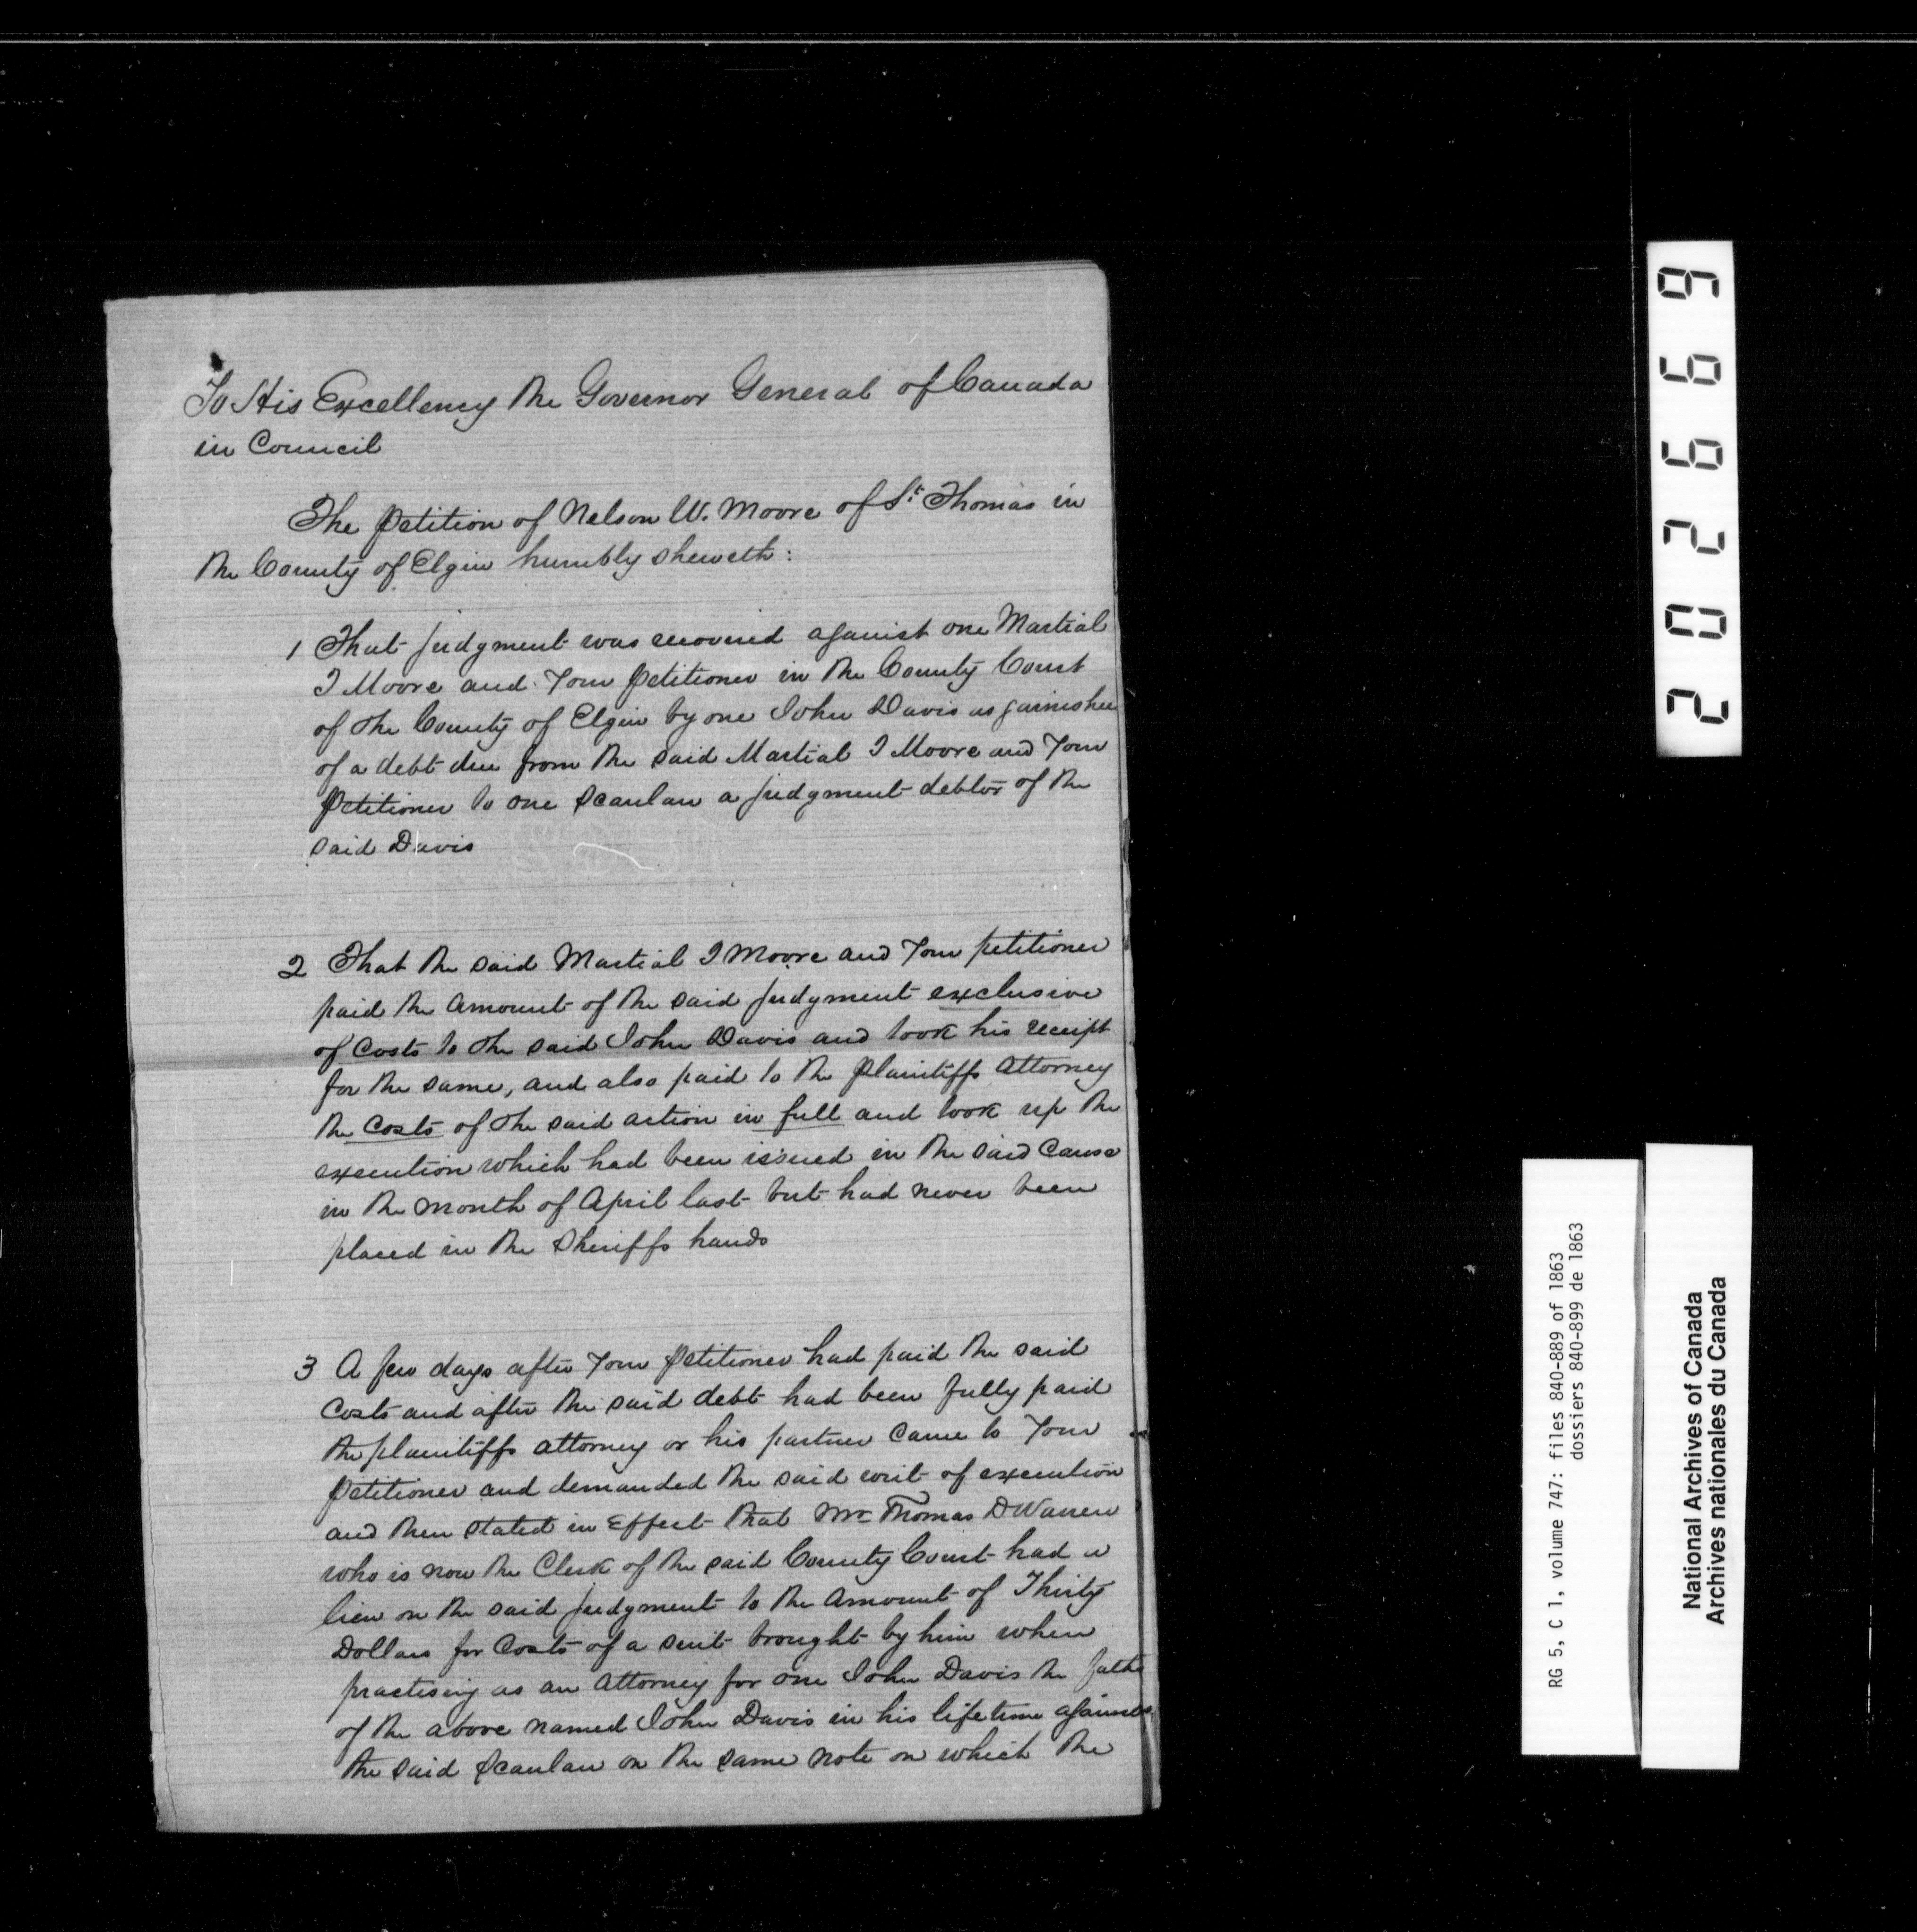 To His Excellency the Governor General of Canada
in Council
The Petition of Nelson W. Moore of St Thomas in
the County of Elgin humbly sheweth:
1 That judgment was recovered against one Martial
I Moore and Your Petitioner in the County Court
of the County of Elgin by one John Davis as garnishee
of a debt due from the said Martial I Moore and Your
Petitioner to one Scanlan a judgment debtor of the
said Davis
2 That the said Martial I Moore and Your petitioner
paid the amount of the said judgment exclusive
of costs to the said John Davis and took his receipt
for the same, and also paid to the plaintiffs attorney
the costs of the said action in full and took up the
execution which had been issued in the said Cause
in the month of April last but had never been
placed in the Sheriffs hands
3 A few days after Your Petitioner had paid the said
Costs and after the said debt had been fully paid
the plaintiffs attorney or his partner came to Your
petitioner and demanded the said writ of execution
and then stated in Effect that Mr Thomas D Warren
who is now the Clerk of the said County Court had a
lien on the said judgment to the Amount of Thirty
Dollars for Costs of a suit brought by him when
practising as an Attorney for one John Davis the fathe
of the above named John Davis in his lifetime against
the said Scanlan on the same note on which the
202669
RG 5, C 1, volume 747: files 840-889 of 1863
dossiers 840-899 de 1863
National Archives of Canada
Archives nationales du Canada